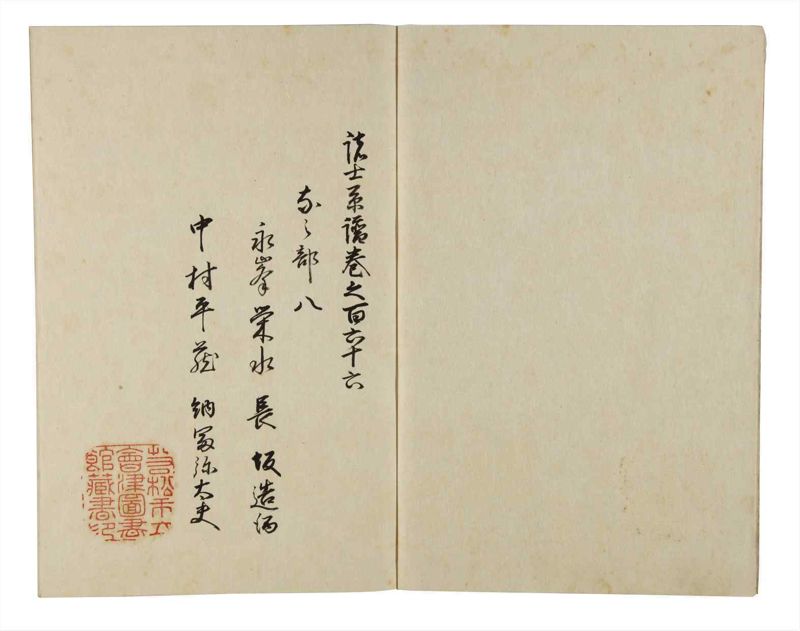 諸士系譜巻之百六十六
なノ部八
永峯栄水 長坂造酒
中村平蔵 納冨弥太夫
若松市立
會津圖書
館藏書印